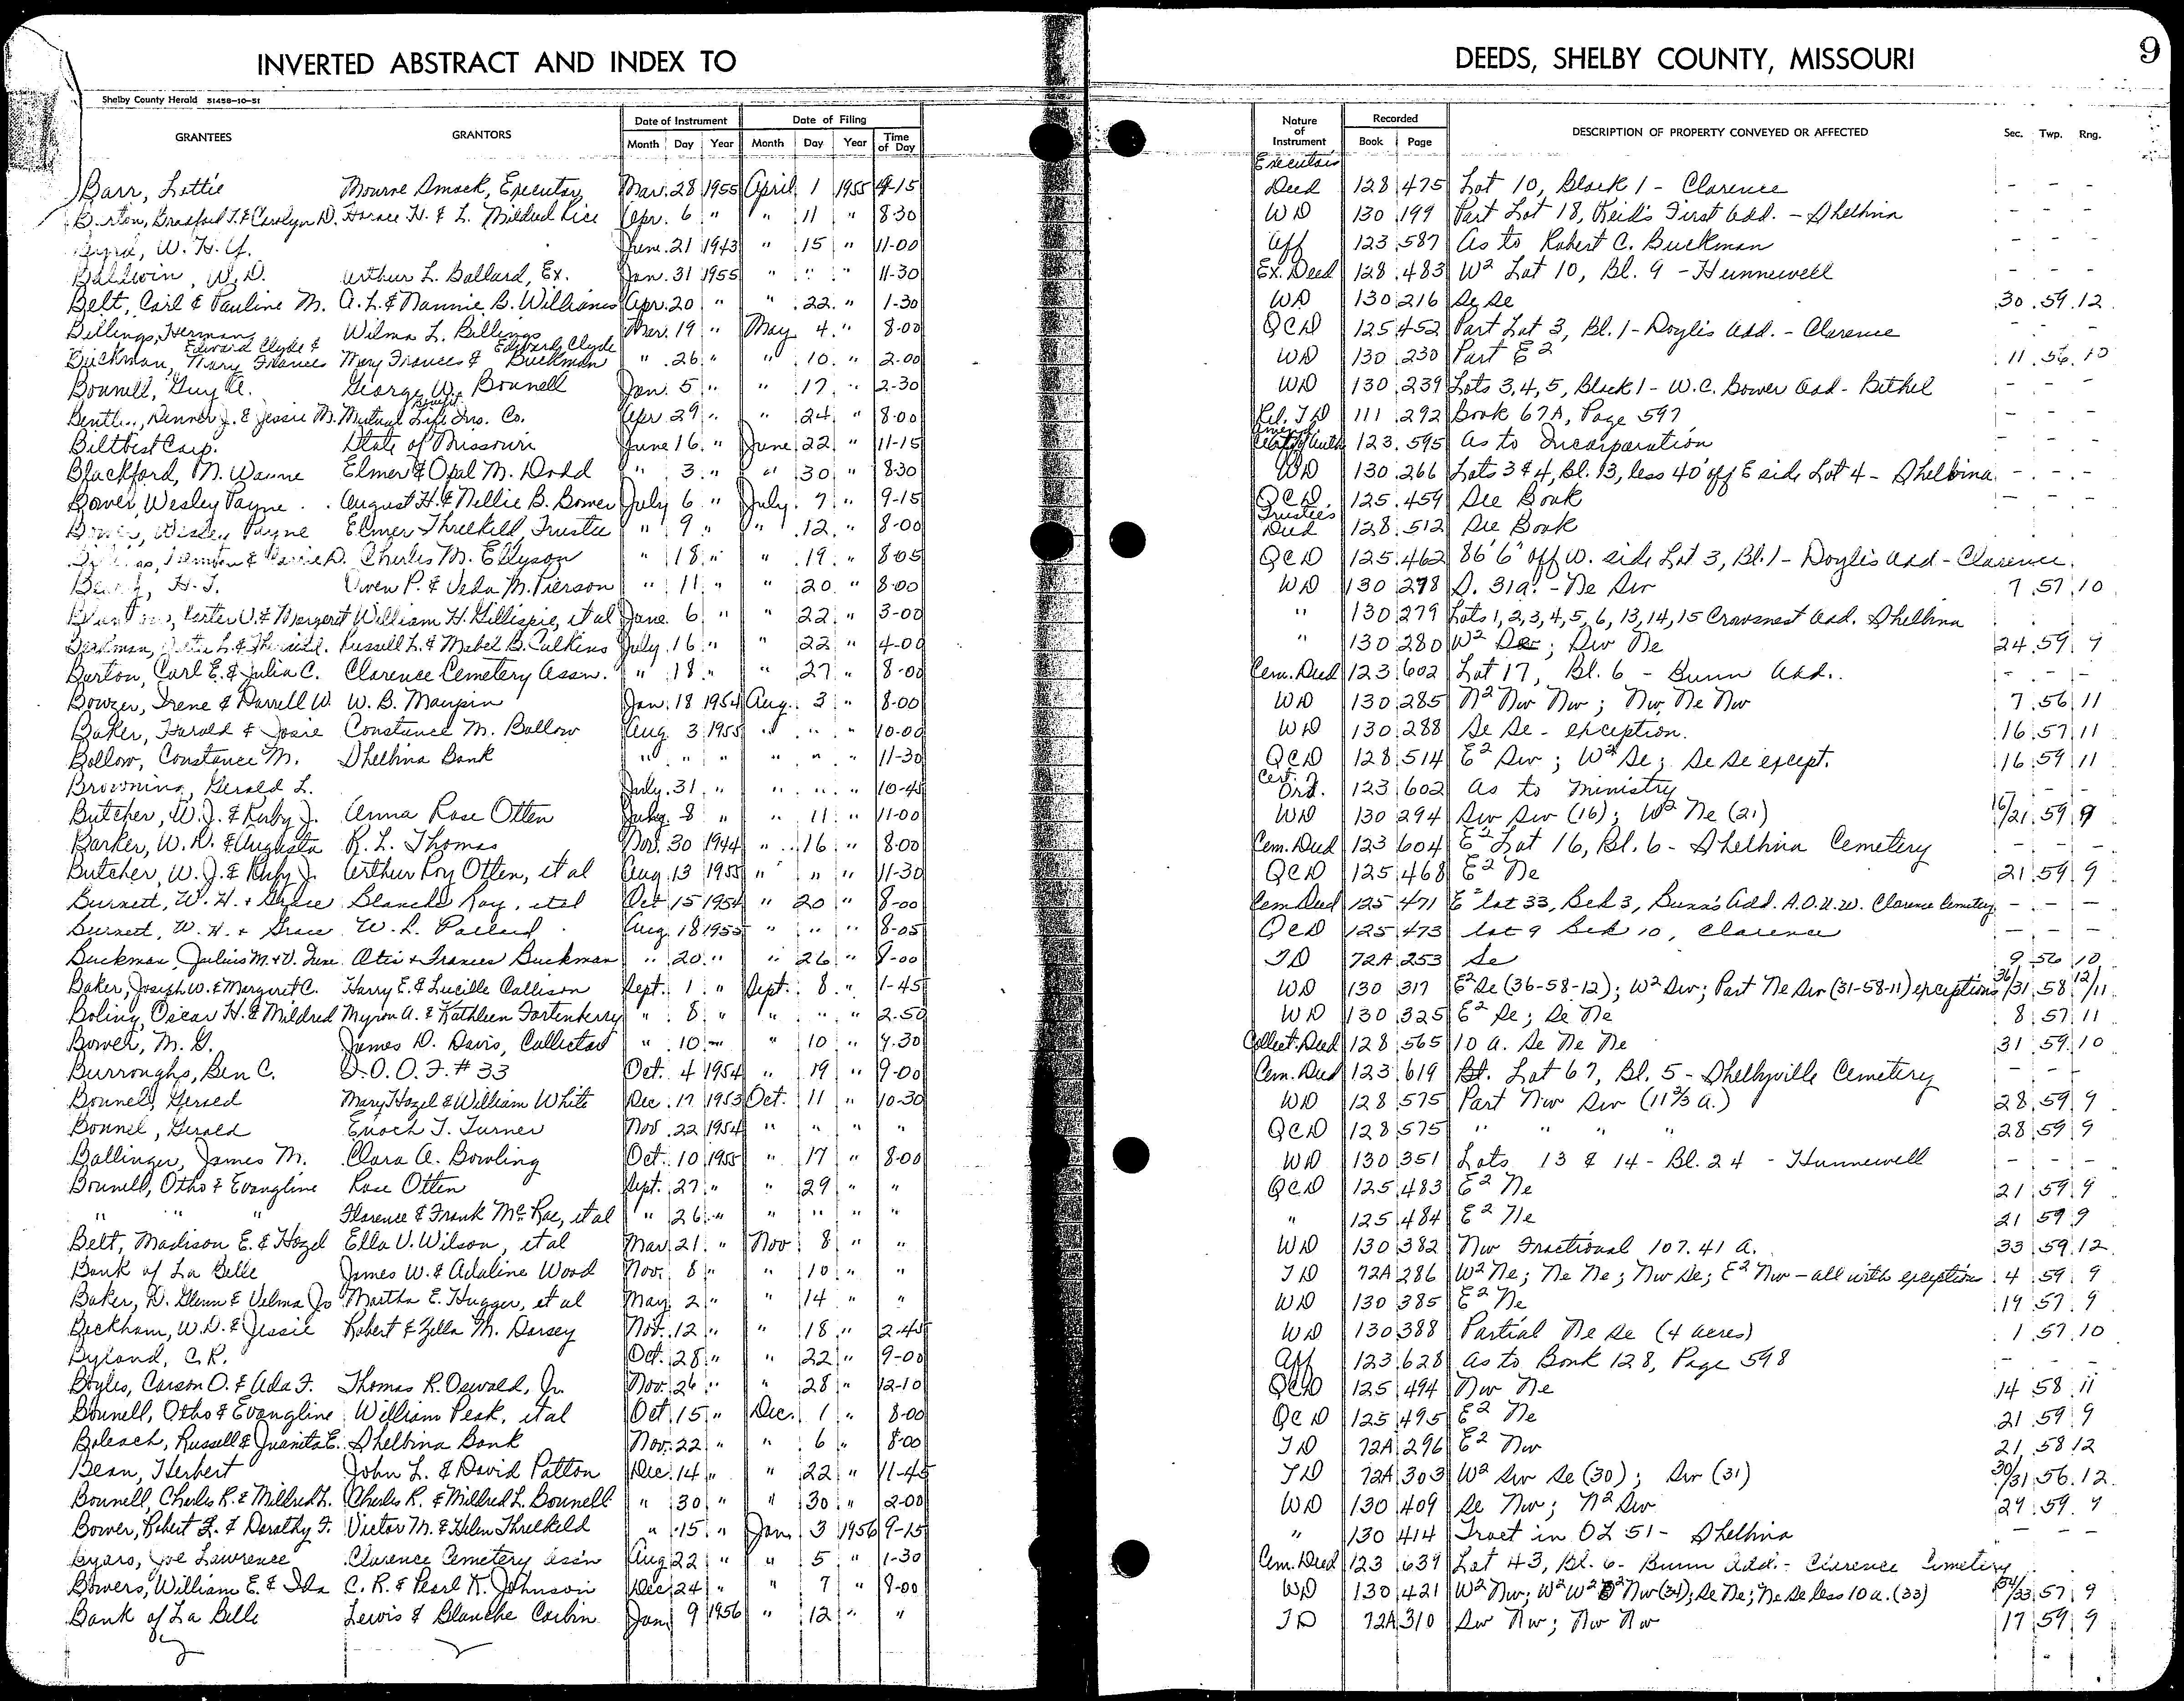 INVERTED ABSTRACT AND INDEX TO DEEDS, SHELBY COUNTY, MISSOURI 9
Shelby County Herald 51458-10-51
GRANTEES GRANTORS Date of Instrument Date of Filing Nature of Instrument Recorded DESCRIPTION OF PROPERTY CONVEYED OR AFFECTED Sec. Twp. Rng.
Month Day Year Month Day Year Time of Day Book Page
Executors
Barr, Lettie Mourne Smock, Executor Mar. 28 1955 April 1 1955 9-15 Deed 128 475 Lot 10, Block 1 - Clarence - - -
Burton, Bradford T. & Carolyn D. Horace H. & L. Mildred Rice Apr. 6 " " 11 " 8-30 WD 130 199 Part Lot 18, Reid's First Add. - Shelbina - - -
W. H. Y. June 21 1943 " 15 " 11-00 Aff 123 587 As to Robert C. Buckman - - -
Baldwin, W. D. Arthur L. Ballard, Ex. Jan. 31 1955 " " " 11-30 Ex. Deed 128 483 W2 Lot 10, Bl. 9 - Hunnewell - - -
Belt, Carl & Pauline M. A. L. & Nannie B. Williams Apr. 20 " " 22 " 1-30 WD 130 216 Se Se 30 59 12
Billings, Herman Wilma L. Billings Mar. 19 " May 4 " 8-00 QCD 125 452 Part Lot 3, Bl. 1 - Doyle's Add. - Clarence - - -
Buckman, Edward Clyde & Mary Frances Mary Frances & Edward Clyde Buckman " 26 " " 10 " 2-00 WD 130 230 Part E2 11 56 10
Bonnell, Guy A. George W. Bonnell Jan. 5 " " 17 " 2-30 WD 130 239 Lots 3, 4, 5, Block 1 - W. C. Bower Add - Bethel - - -
J. & Jessie M. Mutual Benefit Life Ins. Co. Apr 29 " " 24 " 8-00 Rel. TD 111 292 Book 67A, Page 597 - - -
Biltbest Corp. State of Missouri June 16 " June 22 " 11-15 Amend. 123 595 As to Incorporation - - -
Blackford, M. Wayne Elmer & Opal M. Dodd " 3 " " 30 " 8-30 WD 130 266 Lots 3 & 4, Bl. 13, less 40' off E side Lot 4 - Shelbina - - -
Bower, Wesley Payne August H. & Nellie B. Bower July 6 " July 7 " 9-15 QCD 125 459 See Book - - -
Bower, Wesley Payne Elmer Threlkeld, Trustee " 9 " " 12 " 8-00 Trustee's Deed 128 512 See Book
Charles M. Ellyson " 18 " " 19 " 8-05 QCD 125 462 86'6" off W. side Lot 3, Bl. 1 - Doyle's Add - Clarence.
H. T. Owen P. & Veda M. Pierson " 11 " " 20 " 8-00 WD 130 278 S. 31 a. - Ne Sw 7 57 10
Carter V. & Margaret William H. Gillispie, et al June 6 " " 22 " 3-00 " 130 279 Lots 1, 2, 3, 4, 5, 6, 13, 14, 15 Cravensnest Add. Shelbina
Russell L. & Mabel B. Calkins July 16 " " 22 " 4-00 " 130 280 W2 Se; Sw Ne 24 59 9
Burton, Carl E. & Julia C. Clarence Cemetery Assn. " 18 " " 27 " 8-00 Cem. Deed 123 602 Lot 17, Bl. 6 - Bunn Add. - - -
Bowzer, Irene & Darrell W. W. B. Maupin Jan. 18 1954 Aug. 3 " 8-00 WD 130 285 N2 Nw Nw; Nw Ne Nw 7 56 11
Baker, Harold & Josie Constance M. Bollow Aug. 3 1955 " " " 10-00 WD 130 288 Se Se - exception. 16 57 11
Bollow, Constance M. Shelbina Bank " " " " " " 11-30 QCD 128 514 E2 Sw; W2 Se; Se Se except. 16 59 11
Browning, Gerald L. July 31 " " " " 10-45 Cert. Ord. 123 602 As to Ministry -
Butcher, W. J. & Ruby J. Anna Rose Otten July 8 " " 11 " 11-00 WD 130 294 Sw Sw (16); W2 Ne (21) 16/21 59 9
Barker, W. D. & Augusta R. L. Thomas Nov. 30 1944 " 16 " 8-00 Cem. Deed 123 604 E2 Lot 16, Bl. 6 - Shelbina Cemetery - - -
Butcher, W. J. & Ruby J. Arthur Roy Otten, et al Aug 13 1955 " " " 11-30 QCD 125 468 E2 Ne 21 59 9
Burnett, W. H. + Grace Blanche Ray, etal Oct 15 1954 " 20 " 8-00 Cem Deed 125 471 E2 lot 33, Bck 3, Bunn's Add. A.O.U.W. Clarence Cemetery - - -
Burnett, W. H. + Grace W. L. Pollard Aug. 18 1955 " " " 8-05 QCD 125 473 lot 9 Bck 10, Clarence - - -
Buckman, Julius M. + V. June Otis + Frances Buckman " 20 " " 26 " 8-00 TD 72A 253 Se 9 56 10
Baker, Joseph W. & Margaret C. Harry E. & Lucille Callison Sept. 1 " Sept. 8 " 1-45 WD 130 317 E2 Se (36-58-12); W2 Sw; Part Ne Sw (31-58-11) exceptions 36/31 58 12/11
Boling, Oscar H. & Mildred Myron A. & Kathleen Fortenberry " 8 " " " " 2-50 WD 130 325 E2 Se; Se Ne 8 57 11
Bower, M. G. James D. Davis, Collector " 10 " " 10 " 4-30 Collect. Deed 128 565 10 a. Se Ne Ne 31 59 10
Burroughs, Ben C. I.O.O.F. #33 Oct. 4 1954 " 19 " 9-00 Cem. Deed 123 619 Pt. Lot 67, Bl. 5 - Shelbyville Cemetery - - -
Bonnel, Gerald Mary Hazel & William White Dec. 17 1953 Oct. 11 " 10-30 WD 128 575 Part Nw Sw (11 2/3 a.) 28 59 9
Bonnel, Gerald Enoch T. Turner Nov. 22 1954 " " " " QCD 128 575 " " " " 28 59 9
Ballinger, James M. Clara A. Bowling Oct. 10 1955 " 17 " 8-00 WD 130 351 Lots 13 & 14 - Bl. 24 - Hunnewell - - -
Bonnell, Otho & Evangline Rose Otten Sept. 27 " " 29 " " QCD 125 483 E2 Ne 21 59 9
" " " Florence & Frank McRae, et al " 26 " " " " " " 125 484 E2 Ne 21 59 9
Belt, Madison E. & Hazel Ella V. Wilson, et al Mar. 21 " Nov 8 " " WD 130 382 Nw Fractional 107.41 a. 33 59 12
Bank of La Belle James W. & Adaline Wood Nov. 8 " " 10 " " TD 72A 286 W2 Ne; Ne Ne; Nw Se; E2 Nw - all with exception 4 59 9
Baker, D. Glenn & Velma Jo Martha E. Hugger, et al May 2 " " 14 " " WD 130 385 E2 Ne 19 57 9
Beckham, W. D. & Jessie Robert & Zella M. Dorsey Nov. 12 " " 18 " 2-45 WD 130 388 Partial Ne Se (4 acres) 1 57 10
Byland, C. R. Oct. 28 " " 22 " 9-00 Aff 123 628 As to Book 128, Page 598 - - -
Boyles, Carson O. & Ada F. Thomas R. Oswald, Jr. Nov. 26 " " 28 " 12-10 QCD 125 494 Nw Ne 14 58 11
Bonnell, Otho & Evangline William Peak, et al Oct 15 " Dec. 1 " 8-00 QCD 125 495 E2 Ne 21 59 9
Boleach, Russell & Juanita E. Shelbina Bank Nov. 22 " " 6 " 8-00 TD 72A 296 E2 Nw 21 58 12
Bean, Herbert John L. & David Patton Dec. 14 " " 22 " 11-45 TD 72A 303 W2 Sw Se (30); Sw (31) 30/31 56 12
Bonnell, Charles R. & Mildred L. Charles R. & Mildred L. Bonnell " 30 " " 30 " 2-00 WD 130 409 Se Nw; N2 Sw 29 59 9
Bower, Robert L. & Dorothy F. Victor M. & Helen Threlkeld " 15 " Jan. 3 1956 9-15 " 130 414 Tract in OL 51 - Shelbina - - -
Byars, Joe Lawrence Clarence Cemetery Ass'n Aug 22 " " 5 " 1-30 Cem. Deed 123 639 Lot 43, Bl. 6 - Bunn Add. - Clarence Cemetery
Bowers, William E. & Ida C. R. & Pearl K. Johnson Dec 24 " " 7 " 8-00 WD 130 421 W2 Nw; W2 W2 E2 Nw (34); Se Ne; Ne Se less 10 a. (33) 34/33 57 9
Bank of La Belle Lewis & Blanche Corbin Jan. 9 1956 " 12 " " TD 72A 310 Sw Nw; Nw Nw 17 59 9